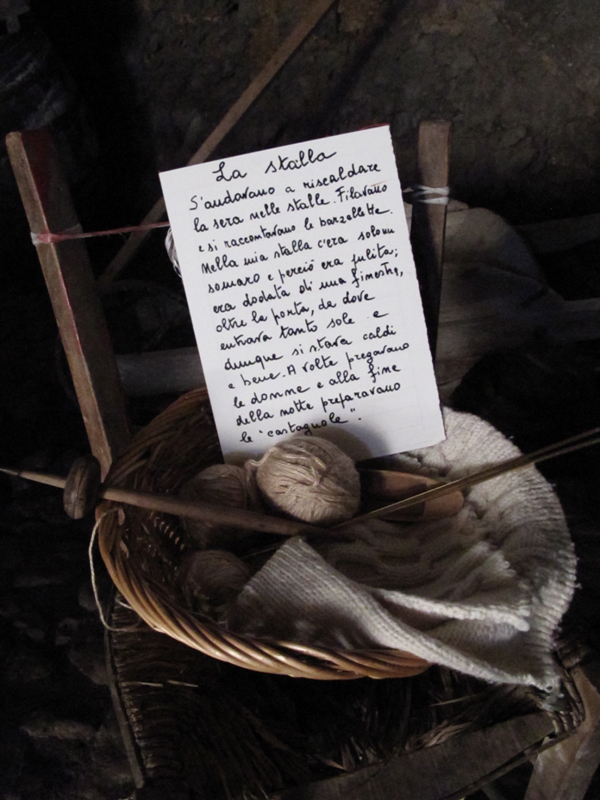 La stalla
S'andavano a riscaldare
la sera nelle stalle. Filavano
e si raccontavano le barzellette.
Nella mia stalla c'era solo un
somaro e perciò era pulita;
era dodata di una finestra,
oltre la porta, da dove
entrava tanto sole e
dunque si stava caldi
e bene. A volte pregavano
le donne e alla fine
della notte preparavano
le "castagnole".